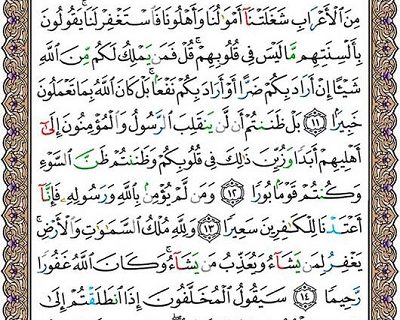 مِنَ ٱلْأَعْرَابِ شَغَلَتْنَآ أَمْوَٰلُنَا وَأَهْلُونَا فَٱسْتَغْفِرْ لَنَا ۚ يَقُولُونَ
بِأَلْسِنَتِهِم مَّا لَيْسَ فِى قُلُوبِهِمْ ۚ قُلْ فَمَن يَمْلِكُ لَكُم مِّنَ ٱللَّهِ
شَيْـًٔا إِنْ أَرَادَ بِكُمْ ضَرًّا أَوْ أَرَادَ بِكُمْ نَفْعًۢا ۚ بَلْ كَانَ ٱللَّهُ بِمَا تَعْمَلُونَ
خَبِيرًۢا ۝١١ بَلْ ظَنَنتُمْ أَن لَّن يَنقَلِبَ ٱلرَّسُولُ وَٱلْمُؤْمِنُونَ إِلَىٰٓ
أَهْلِيهِمْ أَبَدًا وَزُيِّنَ ذَٰلِكَ فِى قُلُوبِكُمْ وَظَنَنتُمْ ظَنَّ ٱلسَّوْءِ
وَكُنتُمْ قَوْمًۢا بُورًا ۝١٢ وَمَن لَّمْ يُؤْمِنۢ بِٱللَّهِ وَرَسُولِهِۦ فَإِنَّآ
أَعْتَدْنَا لِلْكَٰفِرِينَ سَعِيرًا ۝١٣ وَلِلَّهِ مُلْكُ ٱلسَّمَٰوَٰتِ وَٱلْأَرْضِ ۚ
يَغْفِرُ لِمَن يَشَآءُ وَيُعَذِّبُ مَن يَشَآءُ ۚ وَكَانَ ٱللَّهُ غَفُورًا
رَّحِيمًا ۝١٤ سَيَقُولُ ٱلْمُخَلَّفُونَ إِذَا ٱنطَلَقْتُمْ إِلَىٰ